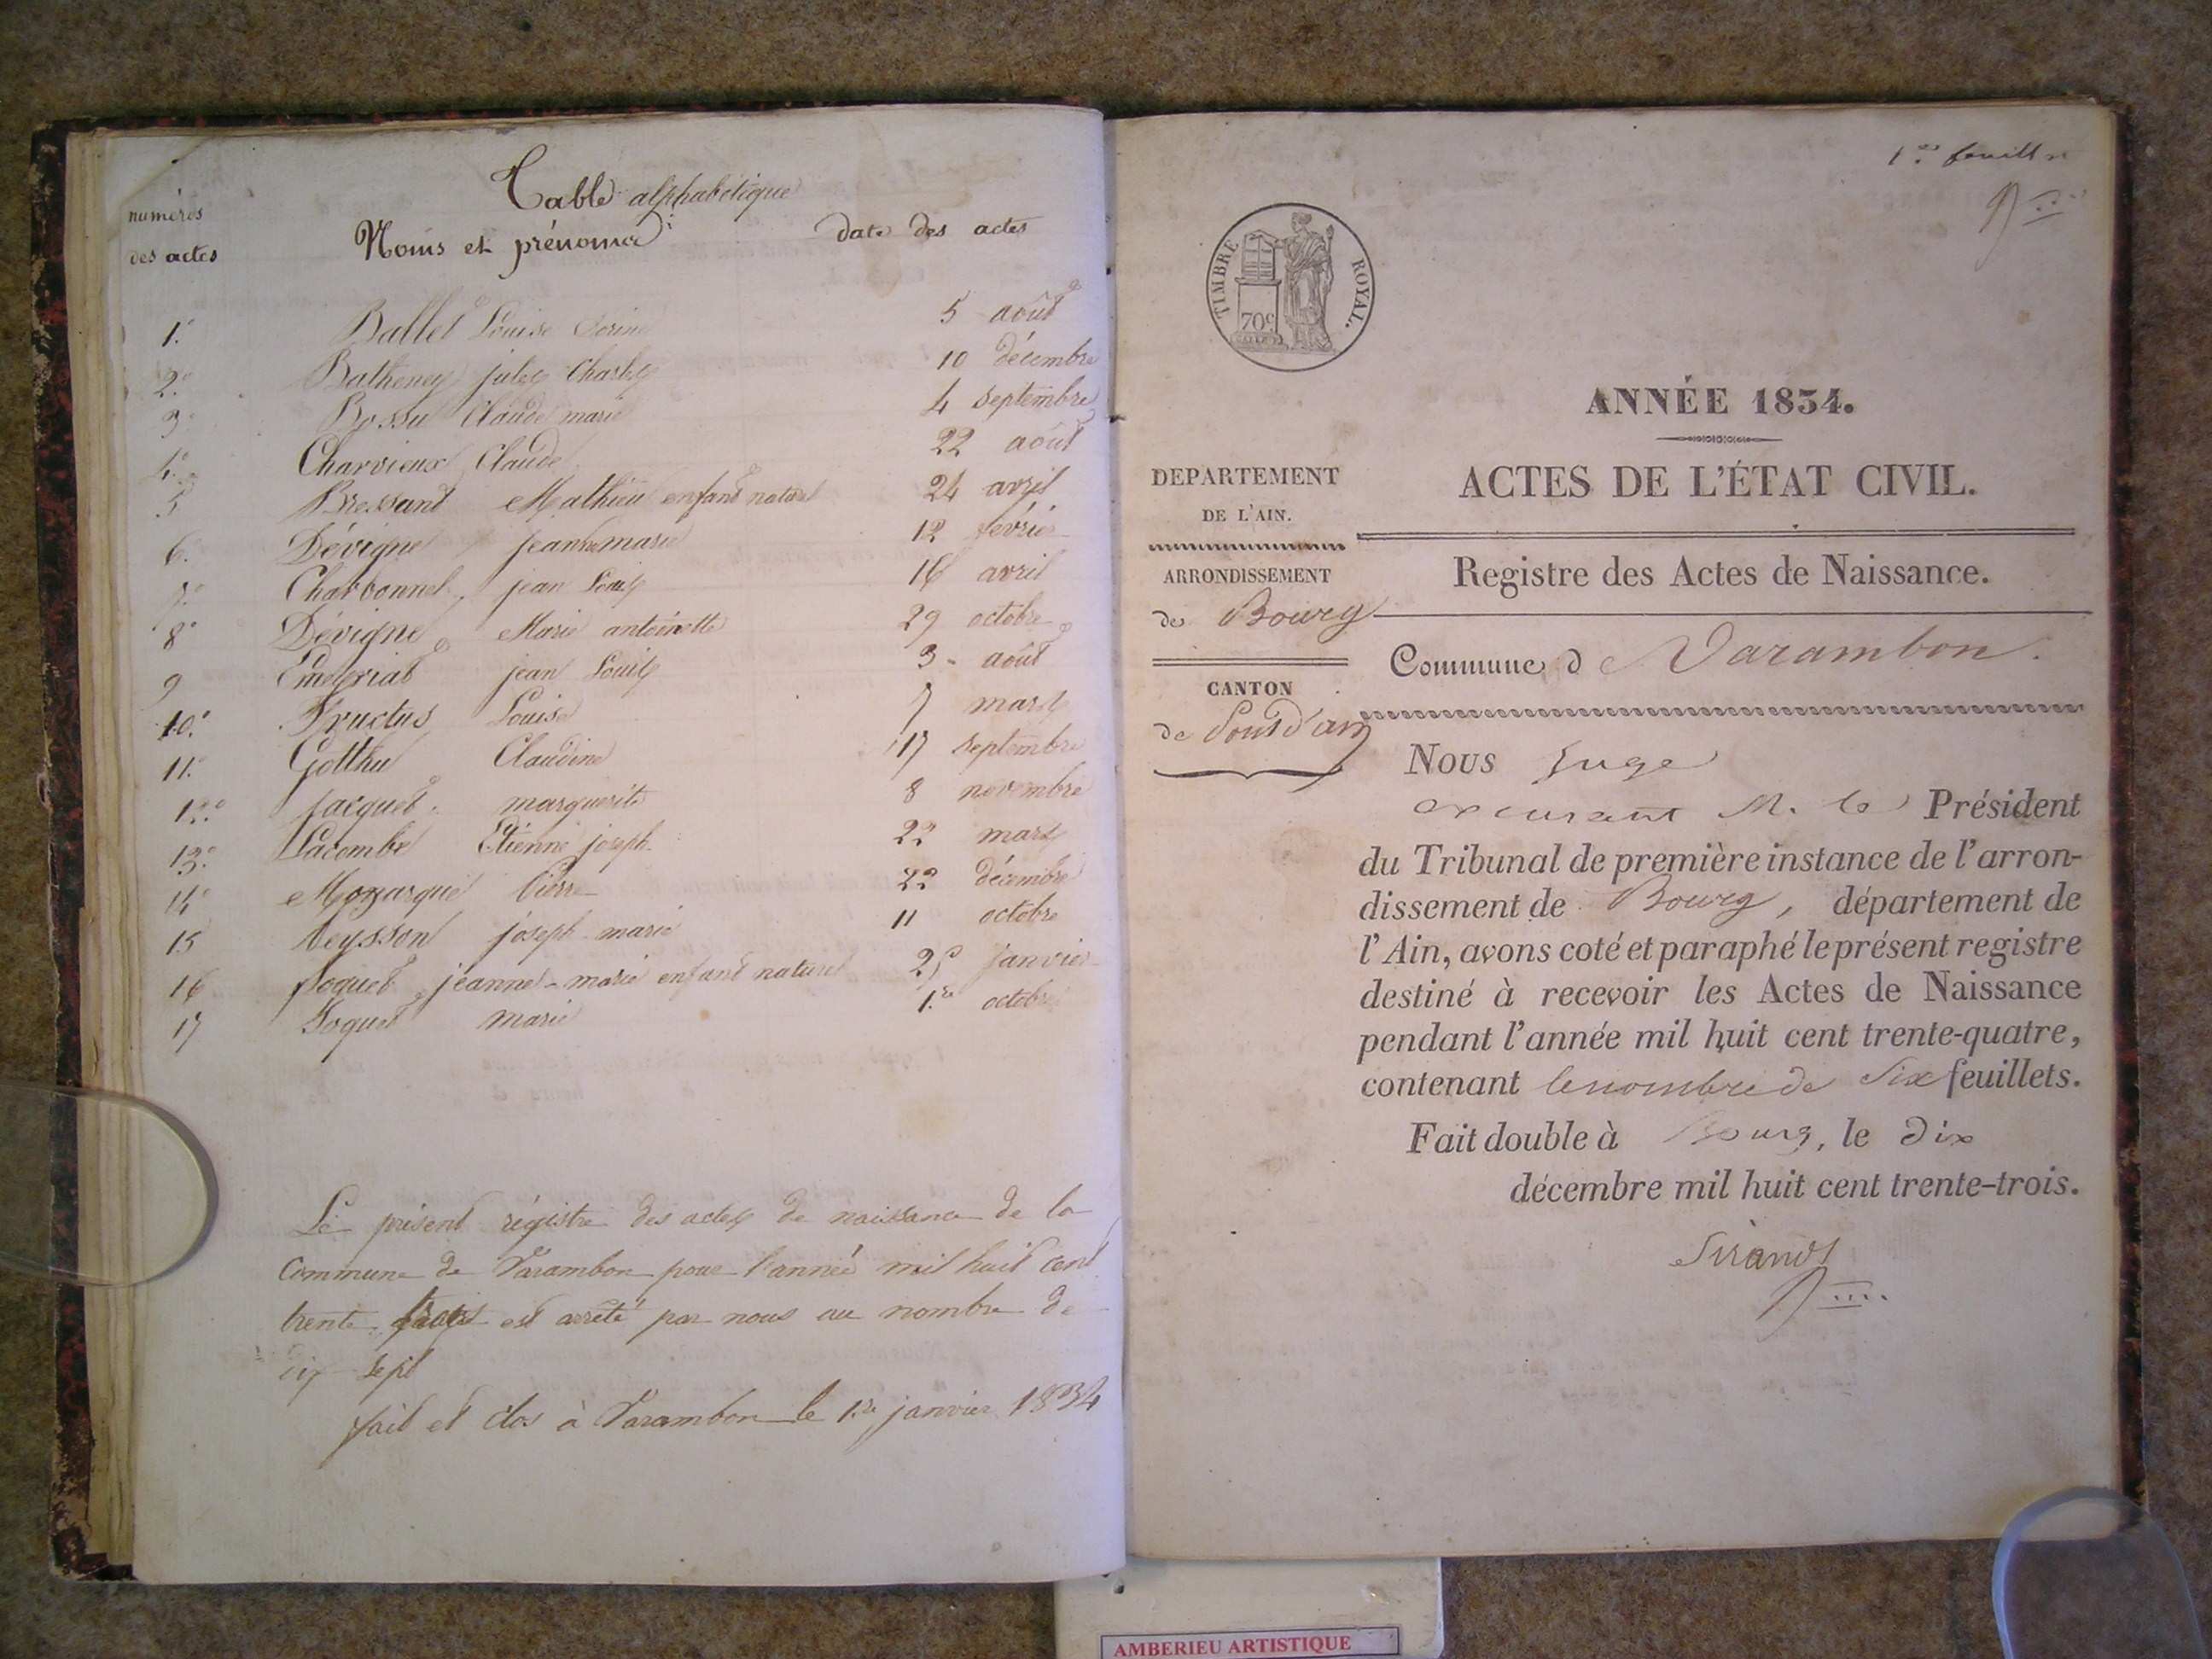 Table alphabétique
numéros
des actes
Noms et prénoms
date des actes
1. Ballet Louise 5 août
2. Batheney jules Charles 10 décembre
3 Bossu Claude marie 4 septembre
4. Charvieux Claude 22 août
5 Bressand Mathieu enfant naturel 24 avril
6. Dévigne jeanne marie 12 février
7. Charbonnel jean Louis 16 avril
8 Dévigne Marie antoinette 29 octobre
9 jean Louis 3 août
10. Fructus Louise 7 mars
11. Gotthu Claudine 17 septembre
12. jacquet marguerite 8 novembre
13. Lacombe Etienne joseph 22 mars
14 Monarque Pierre 22 décembre
15 Neysson joseph marie 11 octobre
16 joquet jeanne-marie enfant naturel 25 janvier
17 Joquet marie 1.re octobre
Le présent régistre des actes de naissance de la
Commune de Varambon pour l'année mil huit cent
trente trois est arrêté par nous au nombre de
dix sept
fait et clos à Varambon le 1.re janvier 1834
1.er feuillet
TIMBRE ROYAL.
70c
ANNÉE 1834.
DEPARTEMENT
DE L'AIN.
ACTES DE L'ÉTAT CIVIL.
ARRONDISSEMENT
de Bourg
Registre des Actes de Naissance.
Commune d e Varambon.
CANTON
de Pont d'ain
Nous juge
excusant M. le Président
du Tribunal de première instance de l'arron-
dissement de Bourg, département de
l'Ain, avons coté et paraphé le présent registre
destiné à recevoir les Actes de Naissance
pendant l'année mil huit cent trente-quatre,
contenant le nombre de Six feuillets.
Fait double à Bourg, le dix
décembre mil huit cent trente-trois.
Sirand
AMBERIEU ARTISTIQUE